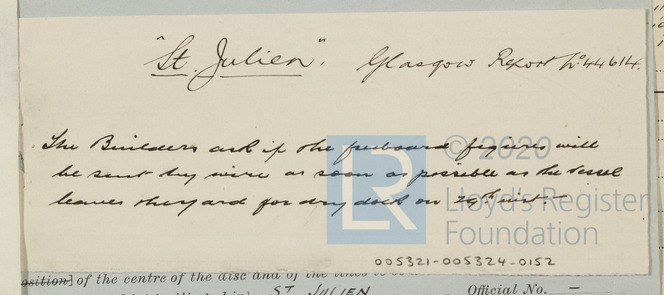 "St. Julien". Glasgow Report No 44614.
The Builders ask if the freeboard figures will
be sent by wire as soon as possible as the vessel
leaves the yard for dry dock on 29th inst. —
LR
© 2020
Lloyd's Register
Foundation
005321-005324-0152
osition] of the centre of the disc and of the lines to be
ST JULIEN Official No. —